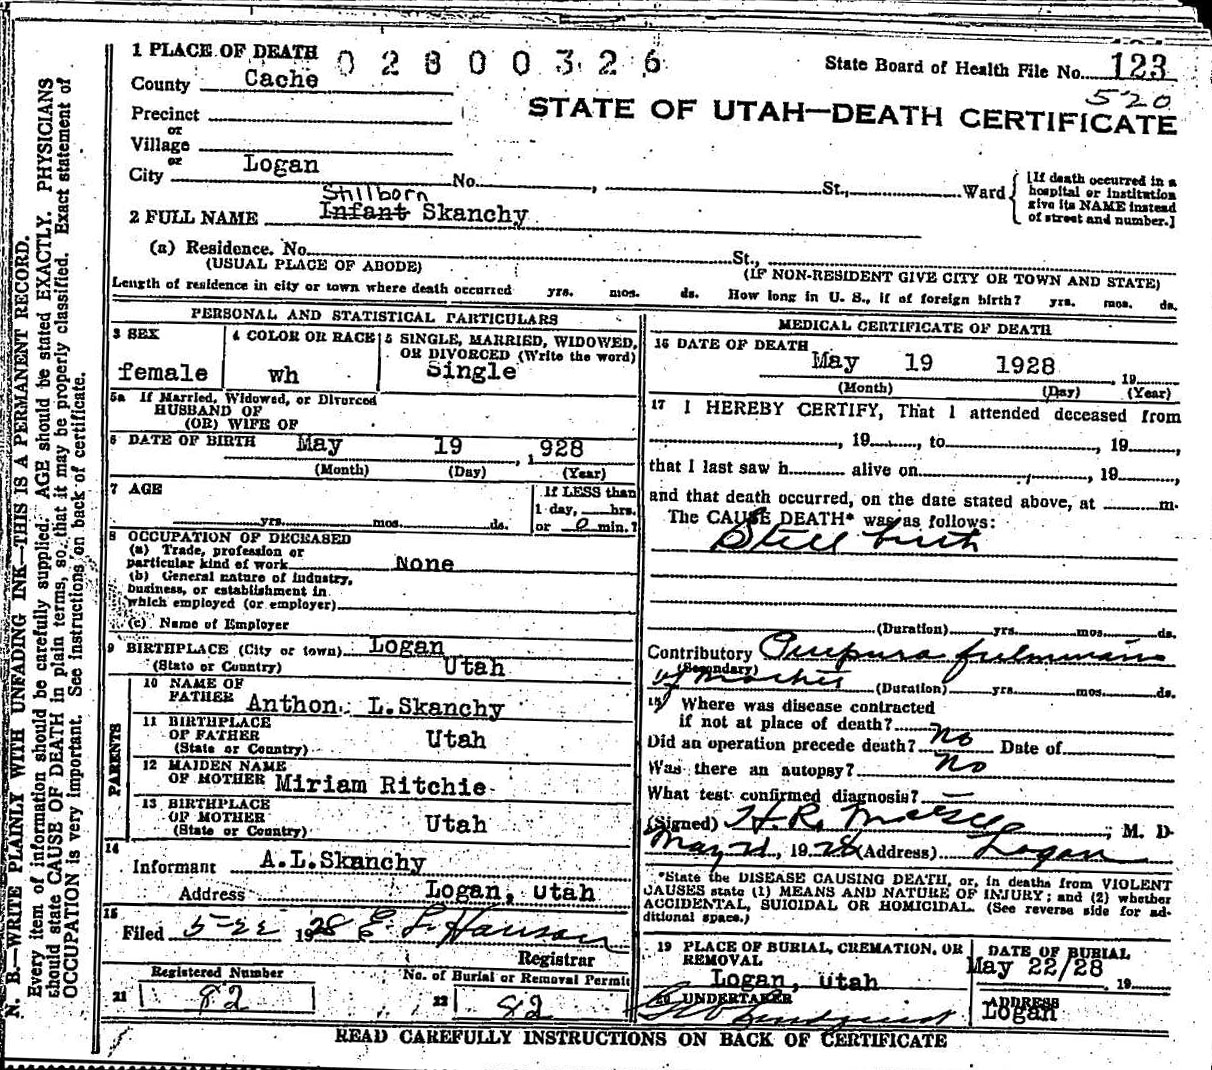 1 PLACE OF DEATH 02800326
State Board of Health File No. 123
County Cache
520
STATE OF UTAH—DEATH CERTIFICATE
Precinct
or
Village
or
City Logan No. , St., Ward
[If death occurred in a hospital or institution give its NAME instead of street and number.]
Stillborn
2 FULL NAME Infant Skanchy
(a) Residence. No. St.,
(USUAL PLACE OF ABODE) (IF NON-RESIDENT GIVE CITY OR TOWN AND STATE)
Length of residence in city or town where death occurred yrs. mos. ds. How long in U. S., if of foreign birth? yrs. mos. ds.
PERSONAL AND STATISTICAL PARTICULARS
3 SEX female
4 COLOR OR RACE wh
5 SINGLE, MARRIED, WIDOWED, OR DIVORCED (Write the word) Single
5a If Married, Widowed, or Divorced
HUSBAND OF
(OR) WIFE OF
6 DATE OF BIRTH May 19, 1928
(Month) (Day) (Year)
7 AGE
yrs. mos. ds.
If LESS than
1 day, hrs.
or 0 min.?
8 OCCUPATION OF DECEASED
(a) Trade, profession or
particular kind of work None
(b) General nature of industry,
business, or establishment in
which employed (or employer)
(c) Name of Employer
9 BIRTHPLACE (City or town) Logan
(State or Country) Utah
PARENTS
10 NAME OF
FATHER Anthon L.Skanchy
11 BIRTHPLACE
OF FATHER Utah
(State or Country)
12 MAIDEN NAME
OF MOTHER Miriam Ritchie
13 BIRTHPLACE
OF MOTHER
(State or Country) Utah
14
Informant A.L.Skanchy
Address Logan, Utah
15
Filed 5-22 1928 E. L. Hanson
Registrar
Registered Number No. of Burial or Removal Permit
21 82 22 82
MEDICAL CERTIFICATE OF DEATH
16 DATE OF DEATH
May 19 1928 , 19
(Month) (Day) (Year)
17 I HEREBY CERTIFY, That I attended deceased from
, 19 , to , 19 ,
that I last saw h alive on , 19 ,
and that death occurred, on the date stated above, at m.
The CAUSE DEATH* was as follows:
Still birth
(Duration) yrs. mos. ds.
Contributory Purpura fulminans
(Secondary)
of mother (Duration) yrs. mos. ds.
18 Where was disease contracted
if not at place of death?
Did an operation precede death? no Date of
Was there an autopsy? no
What test confirmed diagnosis? —
(Signed) H.R. , M. D.
May 21, 1928 (Address) Logan
*State the DISEASE CAUSING DEATH, or, in deaths from VIOLENT
CAUSES state (1) MEANS AND NATURE OF INJURY; and (2) whether
ACCIDENTAL, SUICIDAL OR HOMICIDAL. (See reverse side for ad-
ditional space.)
19 PLACE OF BURIAL, CREMATION, OR
REMOVAL
Logan, Utah
DATE OF BURIAL
May 22/28 , 19
20 UNDERTAKER
ADDRESS
Logan
READ CAREFULLY INSTRUCTIONS ON BACK OF CERTIFICATE
N. B.—WRITE PLAINLY WITH UNFADING INK—THIS IS A PERMANENT RECORD.
Every item of information should be carefully supplied. AGE should be stated EXACTLY. PHYSICIANS
should state CAUSE OF DEATH in plain terms, so that it may be properly classified. Exact statement of
OCCUPATION is very important. See instructions on back of certificate.